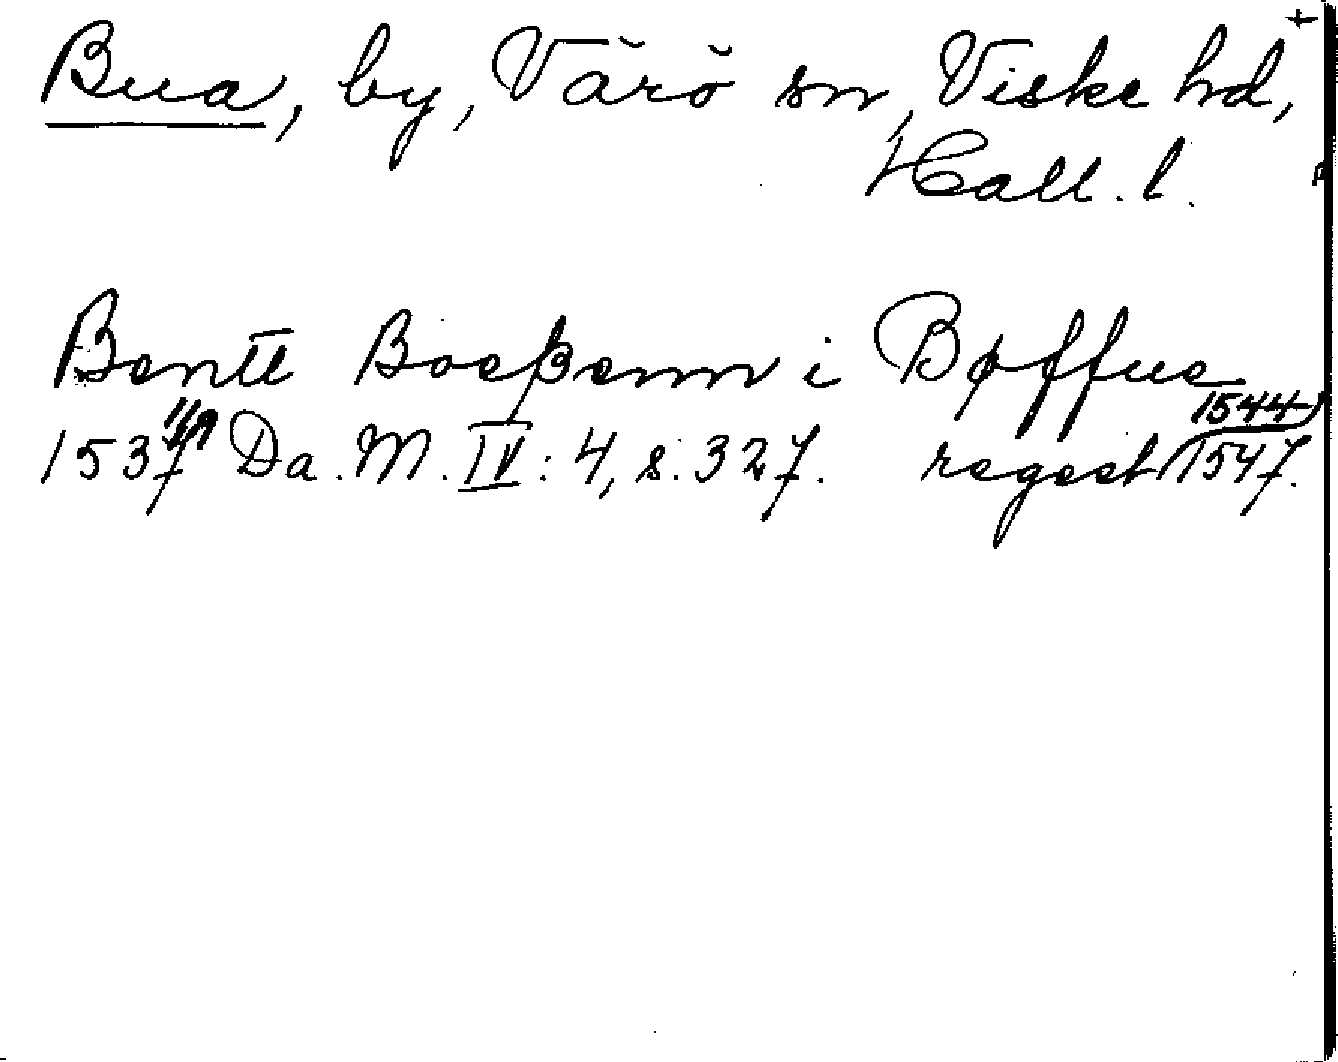 +
Bua, by, Värö sn, Viske hd,
Hall. l.
Bentt Boeßenn i Bøffue
1537 11/9 Da. M. IV: 4, s. 327. regest 1544/1547.